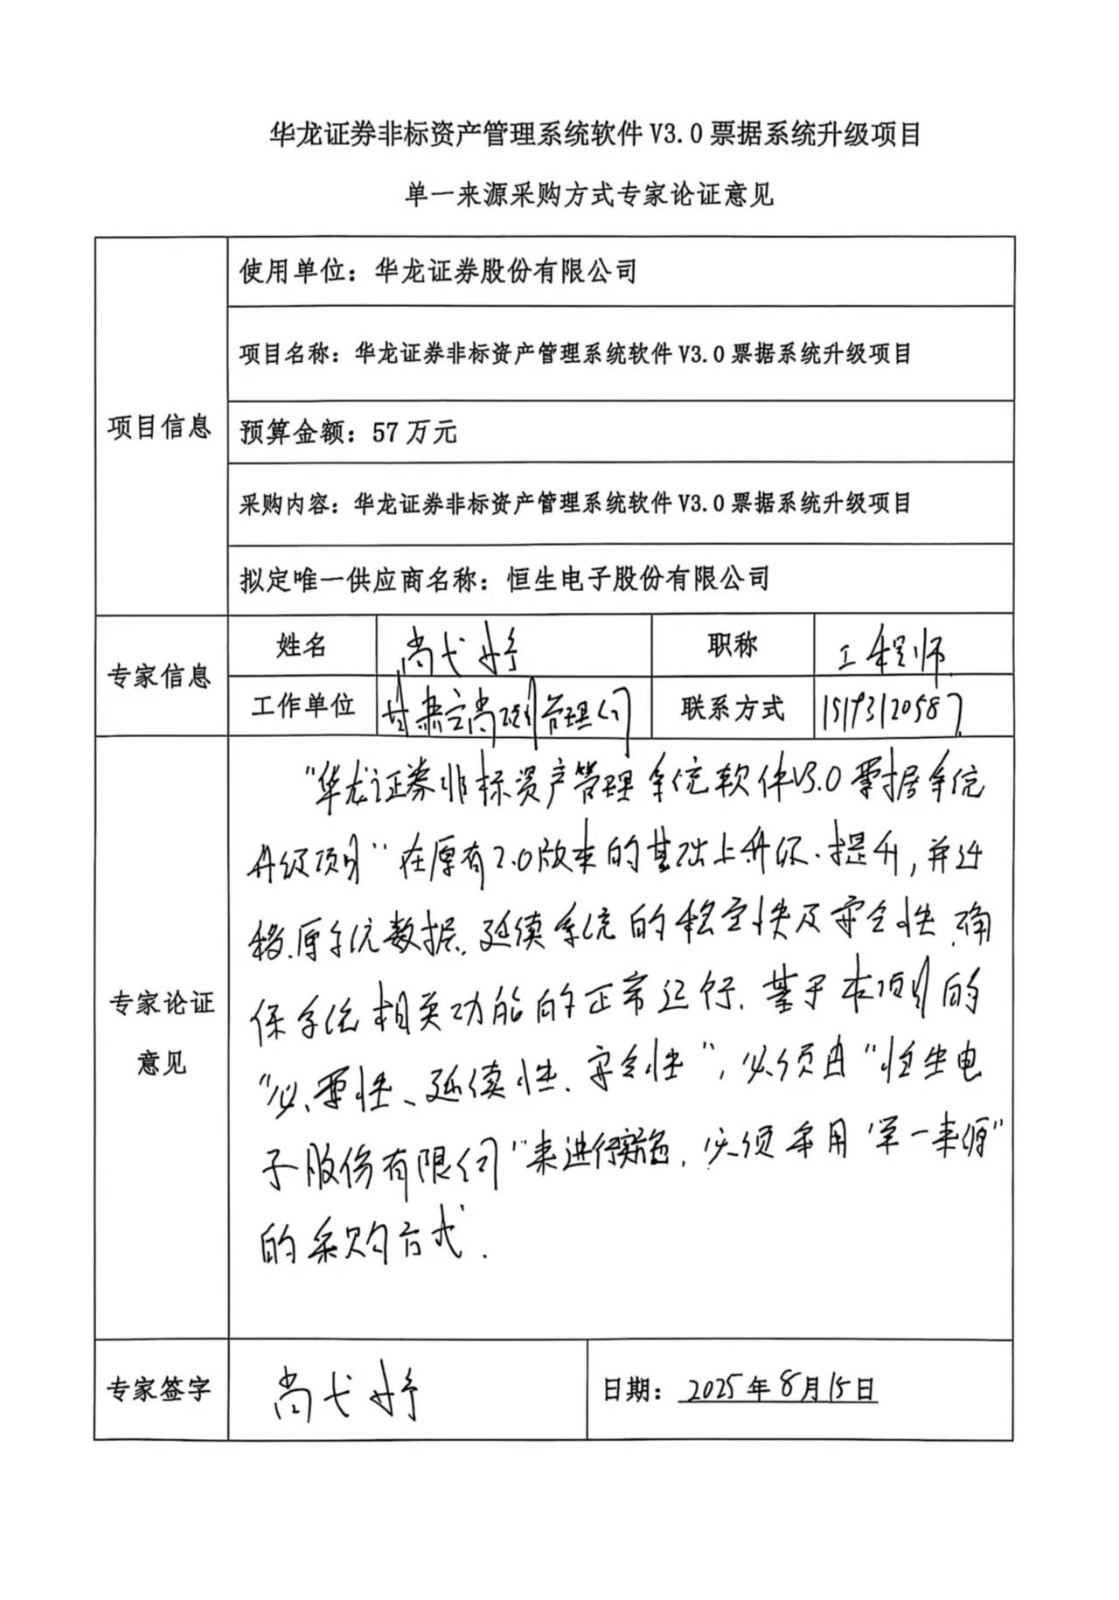 华龙证券非标资产管理系统软件 V3.0 票据系统升级项目
单一来源采购方式专家论证意见
项目信息
使用单位：华龙证券股份有限公司
项目名称：华龙证券非标资产管理系统软件 V3.0 票据系统升级项目
预算金额：57 万元
采购内容：华龙证券非标资产管理系统软件 V3.0 票据系统升级项目
拟定唯一供应商名称：恒生电子股份有限公司
专家信息
姓名
尚弋婷
职称
工程师
工作单位
甘肃 尚项目管理公司
联系方式
15193120587
专家论证
意见
"华龙证券非标资产管理系统软件V3.0票据系统
升级项目"在原有2.0版本的基础上升级.提升,并迁
移原系统数据.延续系统的稳定性及安全性.确
保系统相关功能的正常运行.基于本项目的
"必要性、延续性、安全性",必须由"恒生电
子股份有限公司"来进行实施.必须采用"单一来源"
的采购方式.
专家签字
尚弋婷
日期：2025年8月15日